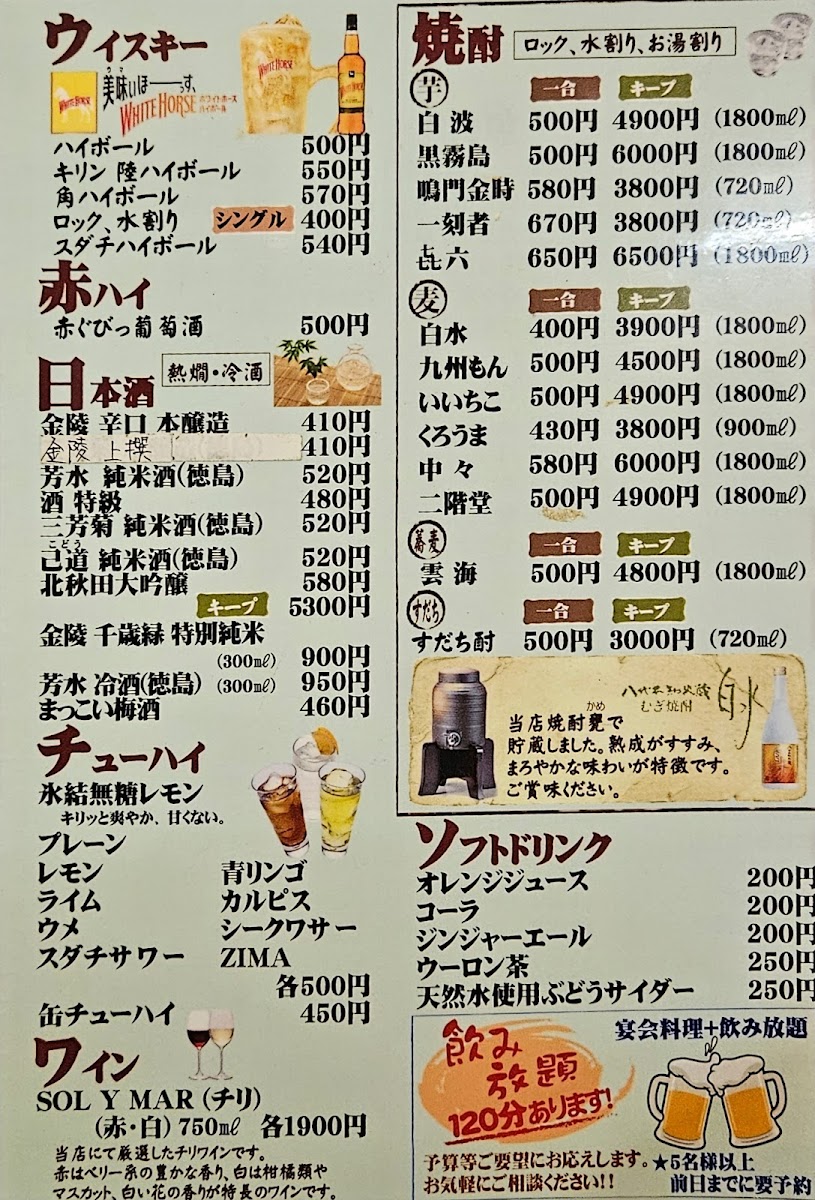 ウイスキー
美味いほーーっす、
ウマ
WHITE HORSE ホワイトホース ハイボール
WHITE HORSE
ハイボール 500円
キリン 陸ハイボール 550円
角ハイボール 570円
ロック、水割り シングル 400円
スダチハイボール 540円
赤ハイ
赤ぐびっ葡萄酒 500円
日本酒 熱燗・冷酒
金陵 辛口 本醸造 410円
金陵 上撰 410円
芳水 純米酒(徳島) 520円
酒 特級 480円
三芳菊 純米酒(徳島) 520円
こどう
己道 純米酒(徳島) 520円
北秋田大吟醸 580円
キープ 5300円
金陵 千歳緑 特別純米
(300㎖) 900円
芳水 冷酒(徳島) (300㎖) 950円
まっこい梅酒 460円
チューハイ
氷結無糖レモン
キリッと爽やか、甘くない。
プレーン
レモン 青リンゴ
ライム カルピス
ウメ シークワサー
スダチサワー ZIMA
各500円
缶チューハイ 450円
ワイン
SOL Y MAR (チリ)
(赤・白) 750㎖ 各1900円
当店にて厳選したチリワインです。
赤はベリー系の豊かな香り、白は柑橘類や
マスカット、白い花の香りが特長のワインです。
焼酎 ロック、水割り、お湯割り
芋 一合 キープ
白波 500円 4900円 (1800㎖)
黒霧島 500円 6000円 (1800㎖)
鳴門金時 580円 3800円 (720㎖)
一刻者 670円 3800円 (720㎖)
㐂六 650円 6500円 (1800㎖)
麦 一合 キープ
白水 400円 3900円 (1800㎖)
九州もん 500円 4500円 (1800㎖)
いいちこ 500円 4900円 (1800㎖)
くろうま 430円 3800円 (900㎖)
中々 580円 6000円 (1800㎖)
二階堂 500円 4900円 (1800㎖)
蕎麦 一合 キープ
雲海 500円 4800円 (1800㎖)
すだち 一合 キープ
すだち酎 500円 3000円 (720㎖)
むぎ焼酎 白水
かめ
当店焼酎甕で
貯蔵しました。熟成がすすみ、
まろやかな味わいが特徴です。
ご賞味ください。
ソフトドリンク
オレンジジュース 200円
コーラ 200円
ジンジャーエール 200円
ウーロン茶 250円
天然水使用ぶどうサイダー 250円
飲み放題
120分あります!
宴会料理+飲み放題
予算等ご要望にお応えします。
お気軽にご相談ください!!
★5名様以上
前日までに要予約